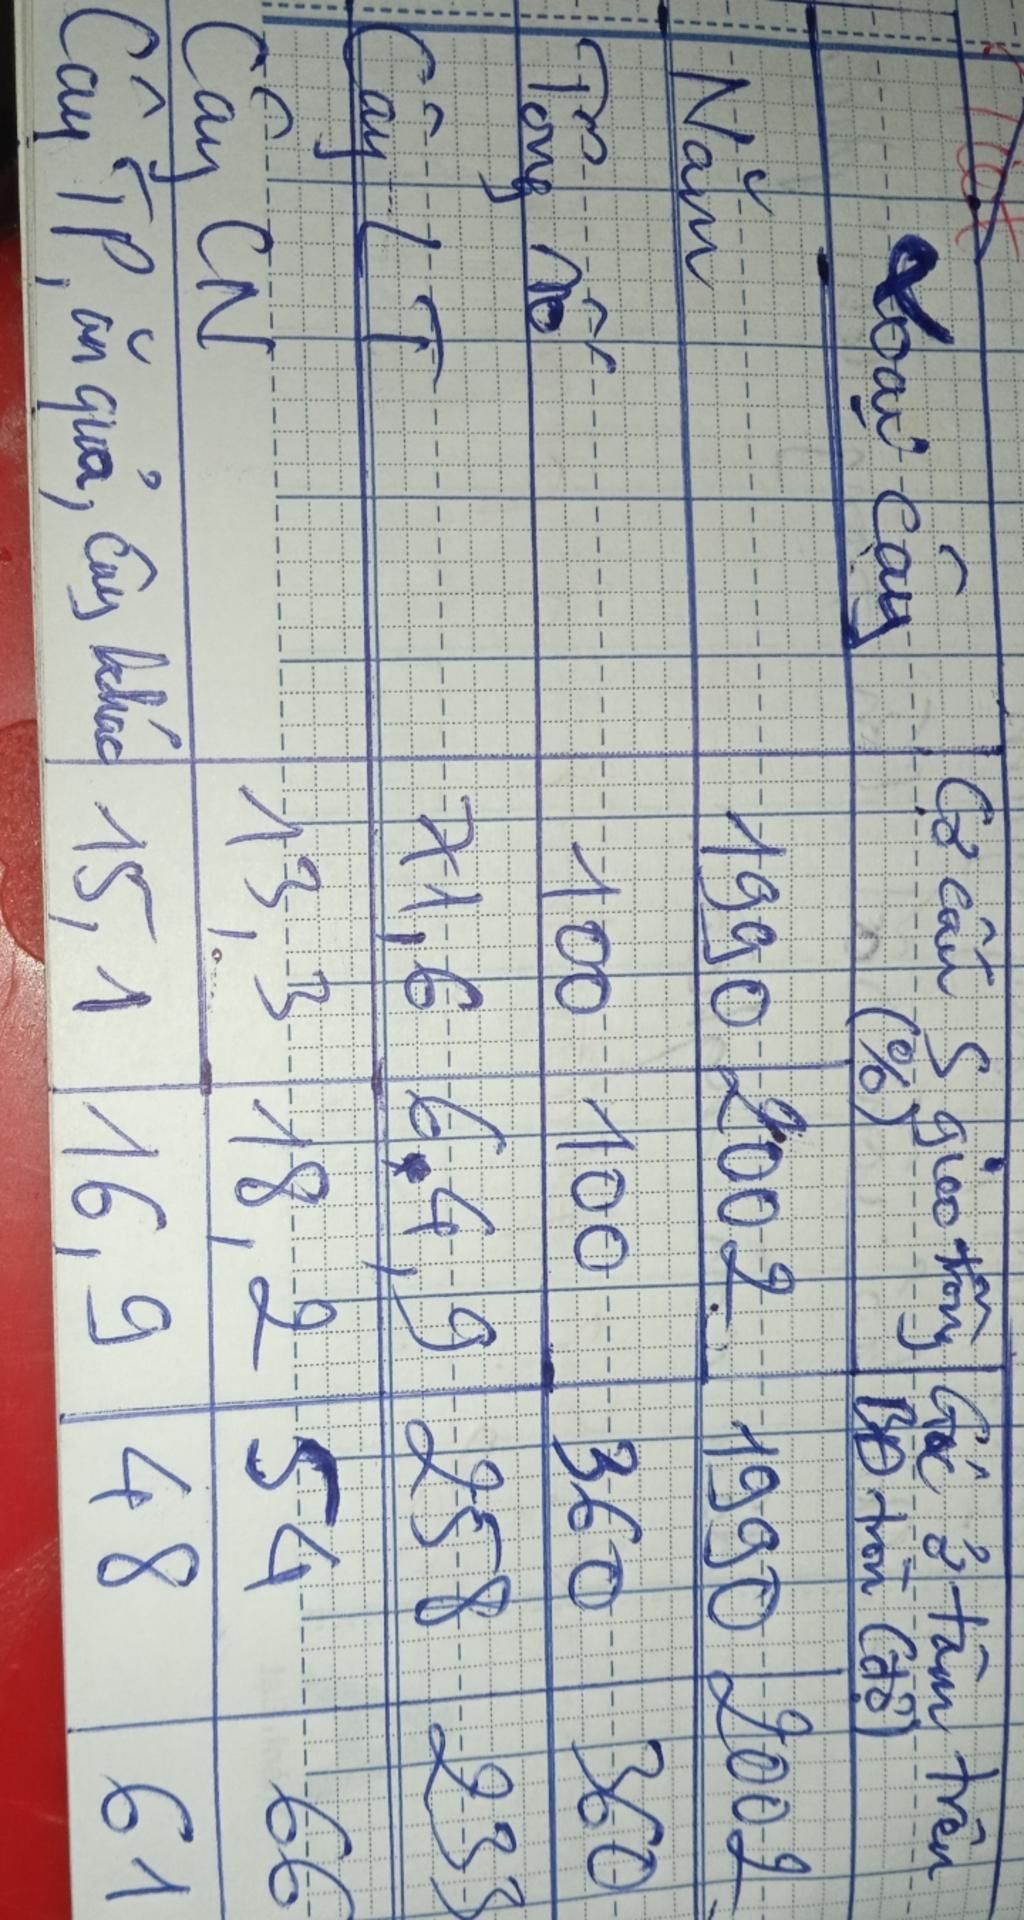 Loại cây Cơ cấu S gieo trồng (%) Góc ở tâm trên BĐ tròn (độ)
Năm 1990 2002 1990 2002
Tổng số 100 100 360 360
Cây LT 71,6 64,9 258 233
Cây CN 13,3 18,2 54 66
Cây TP, ăn quả, cây khác 15,1 16,9 48 61